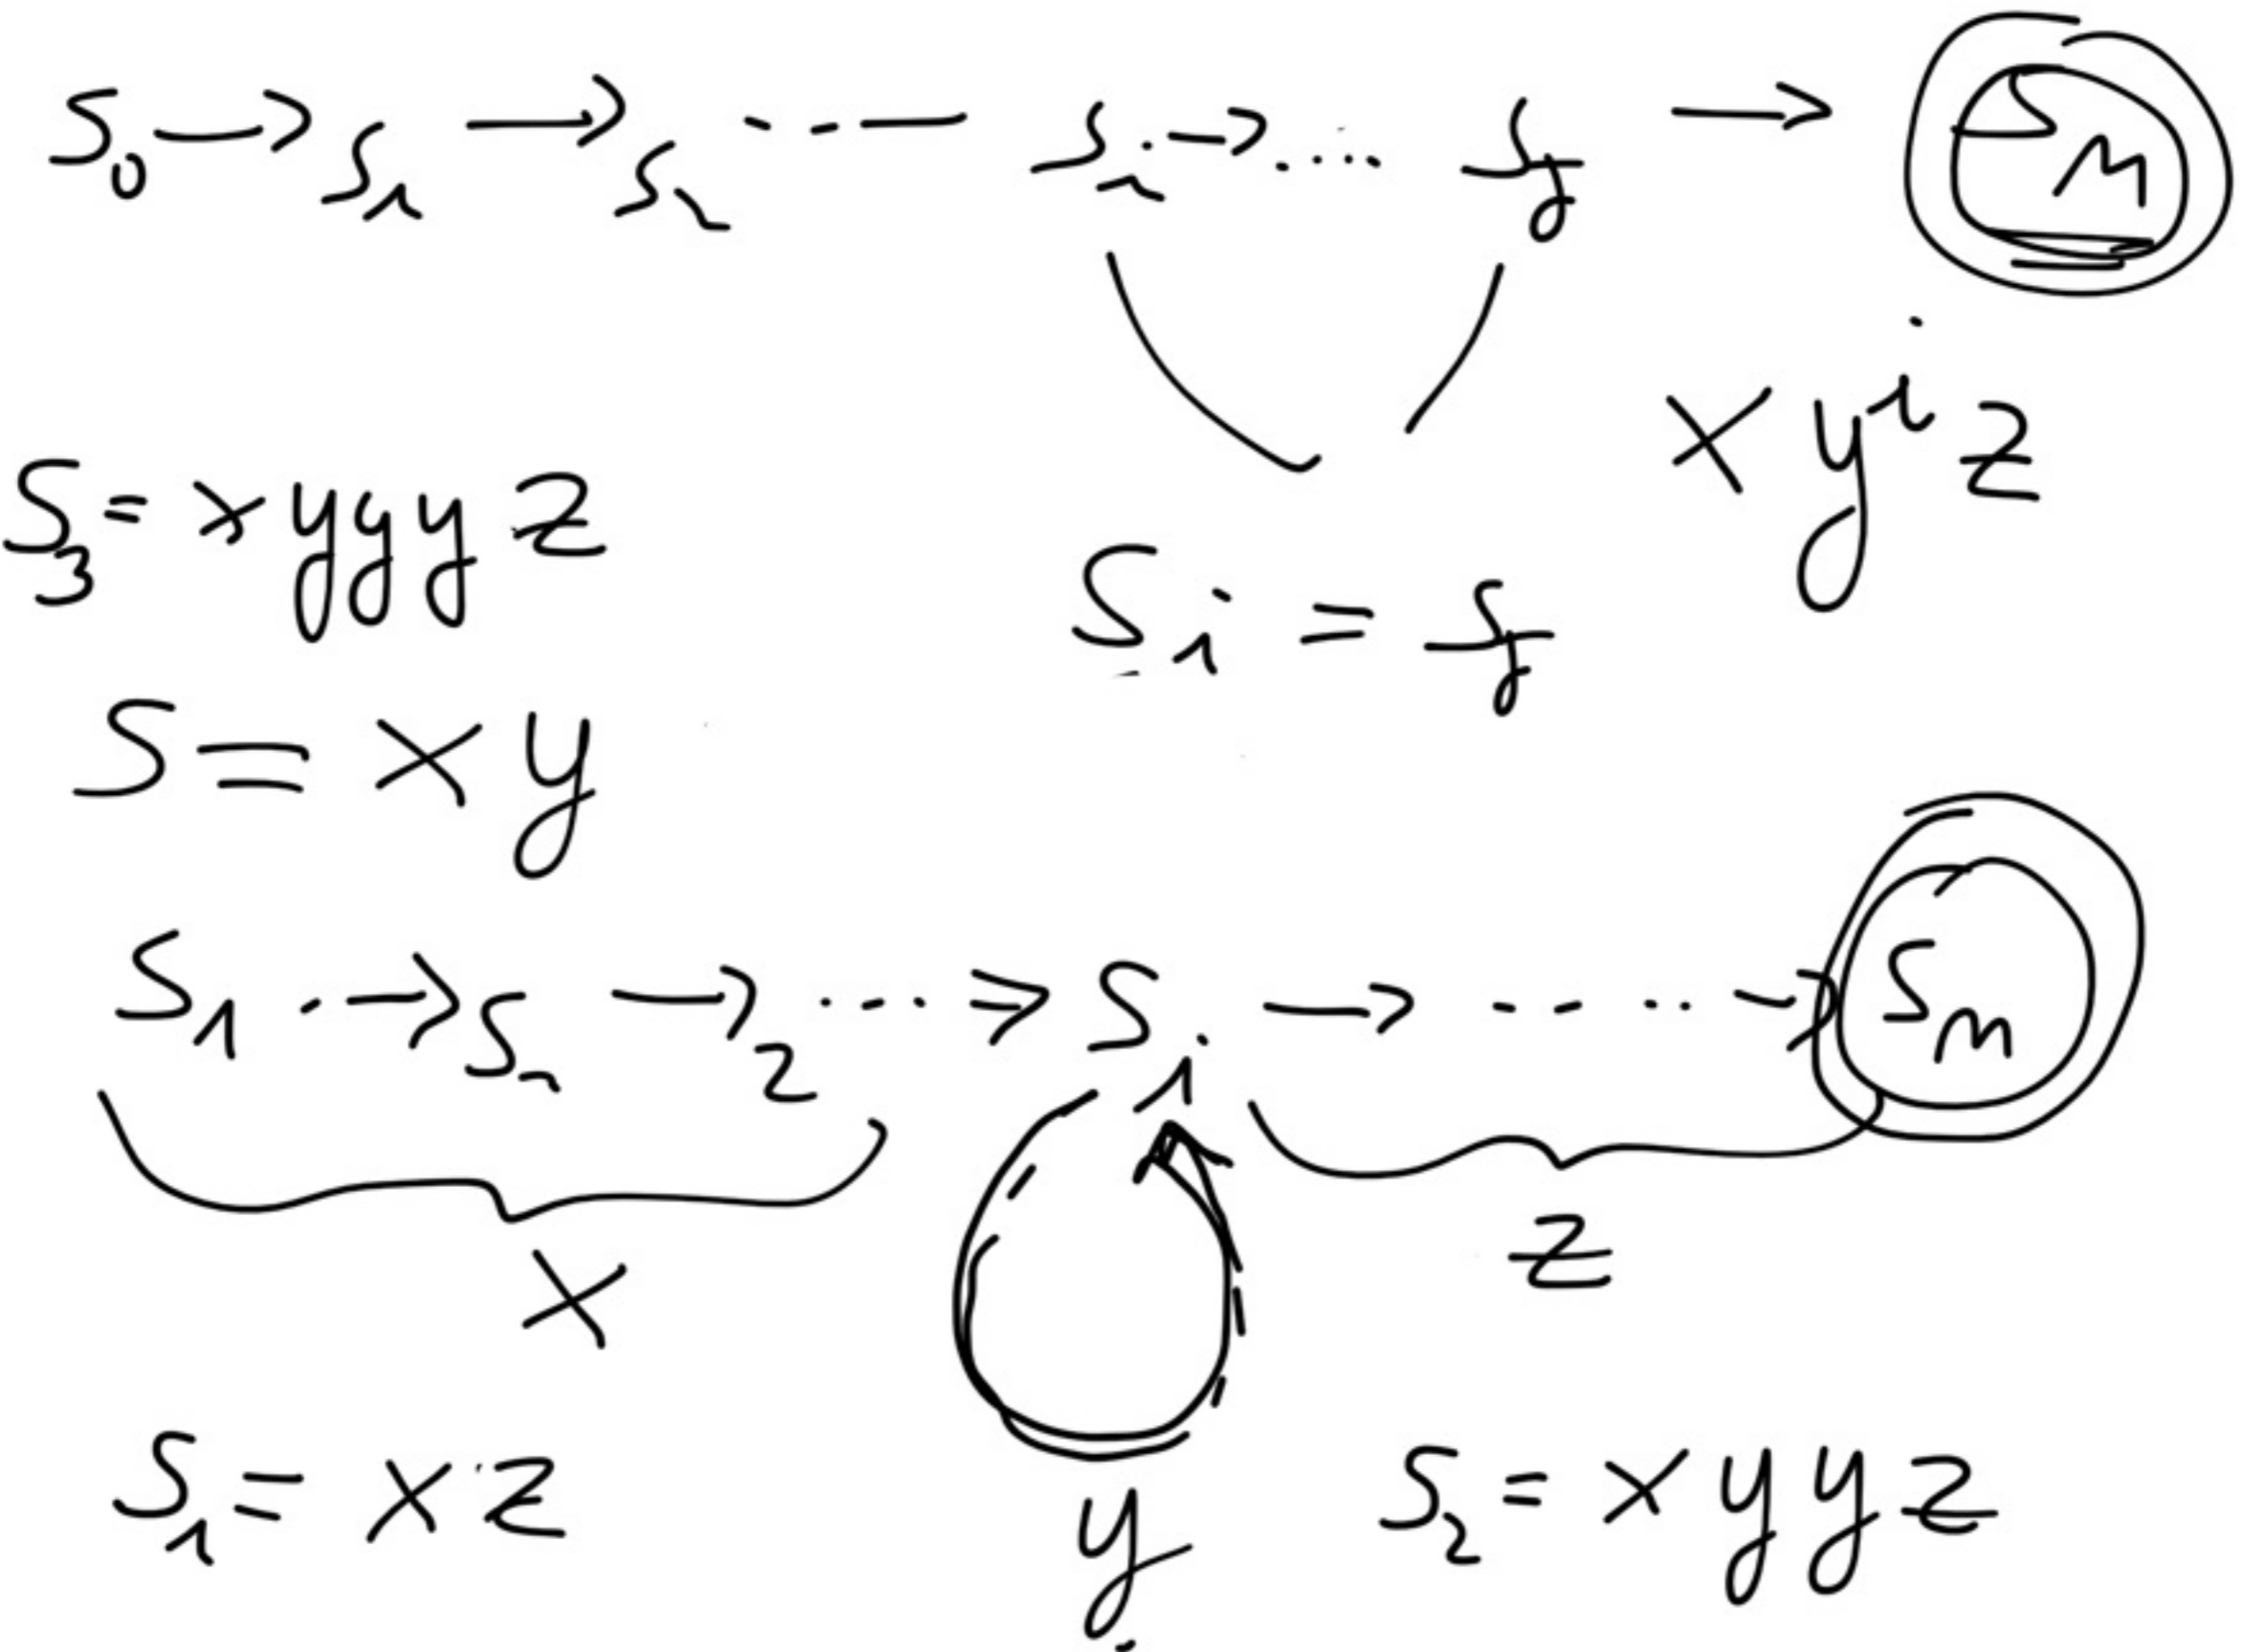 S₀ → S₁ → S₂ ... — Sᵢ → .... Sⱼ → Sₘ
x yⁱ z
S₃ = x y y y z
Sᵢ = Sⱼ
S = x y
S₁ → S → ₂ ... → Sᵢ → .... → Sₘ
x z
y
S₁ = x z S₂ = x y y z